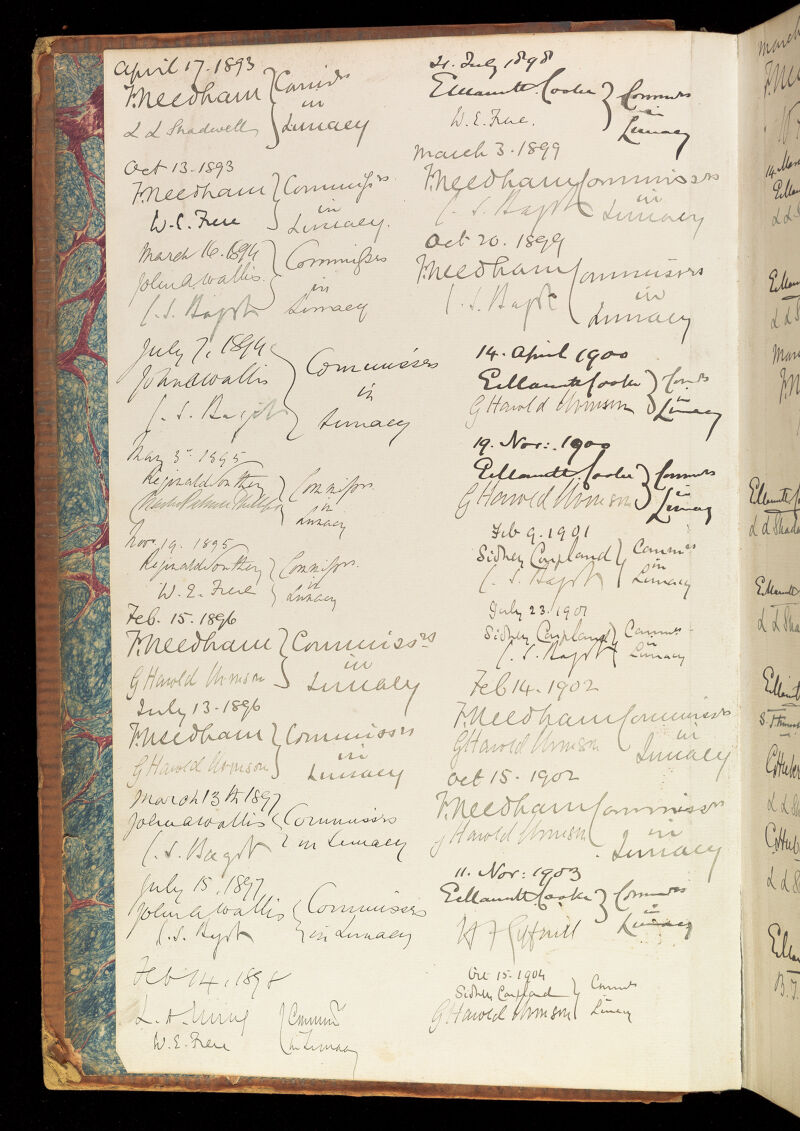 April 17. 1893
F. Needham
L L Shadwell
in
Lunacy
Oct 13. 1893
F. Needham
W. E. Frere
Commissrs
in
Lunacy.
March 16. 1894
John A Wallis.
C. S. Bagot
Commissrs
in
Lunacy
July 7, 1894
John A Wallis
C. S. Bagot
Commissrs
in
Lunacy
Reginald Southey
Commissrs
in
Lunacy
Nov. 19. 1895
Reginald Southey
W. E. Frere
Commissrs.
in
Lunacy
Feb. 15. 1896
F. Needham
G Harold Urmson
Commissrs
in
Lunacy
July 13. 1896
F. Needham
G Harold Urmson
Commissrs
in
Lunacy
March 13th 1897
John A Wallis
C. S. Bagot
Commissrs
in Lunacy
July 15, 1897
John A Wallis
C. S. Bagot
Commissrs
in Lunacy
Feb 14, 1898
W. E. Frere
in Lunacy
21. July 1898
E Marriott Cooke
W. E. Frere.
Commrs
in
Lunacy
March 3. 1899
F. Needham
C. S. Bagot
Commissrs
in
Lunacy
Oct 20. 1899
F. Needham
C. S. Bagot
Commissrs
in
Lunacy
14. April 1900
E Marriott Cooke
G Harold Urmson
in
Lunacy
19. Nov: 1900
E Marriott Cooke
G Harold Urmson
Commrs
in
Lunacy
Feb 9. 1901
Sidney Coupland
C. S. Bagot
Commrs
in
Lunacy
July 23. 1901
Sidney Coupland
C. S. Bagot
Commrs
in
Lunacy
Feb 14. 1902
F. Needham
G Harold Urmson
Commissrs
in
Lunacy
Oct 15. 1902
F. Needham
G Harold Urmson
Commissrs
in
Lunacy
11. Nov: 1903
E Marriott Cooke
Commrs
in
Lunacy
Oct 15. 1904
Sidney Coupland
G. Harold Urmson
Commrs
in
Lunacy